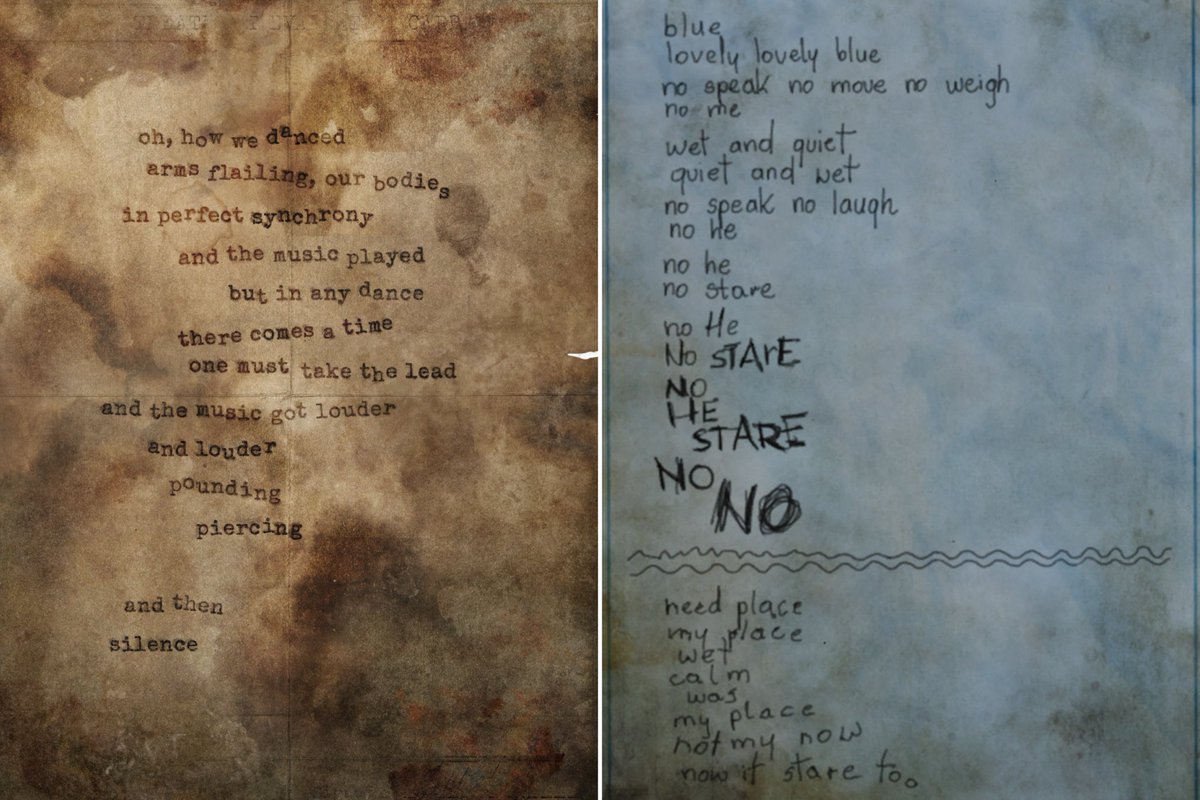 oh, how we danced
arms flailing, our bodies
in perfect synchrony
and the music played
but in any dance
there comes a time
one must take the lead
and the music got louder
and louder
pounding
piercing
and then
silence
blue
lovely lovely blue
no speak no move no weigh
no me
wet and quiet
quiet and wet
no speak no laugh
no he
no he
no stare
no He
No STArE
NO
HE
STARE
NO
NO
need place
my place
wet
calm
was
my place
not my now
now it stare too